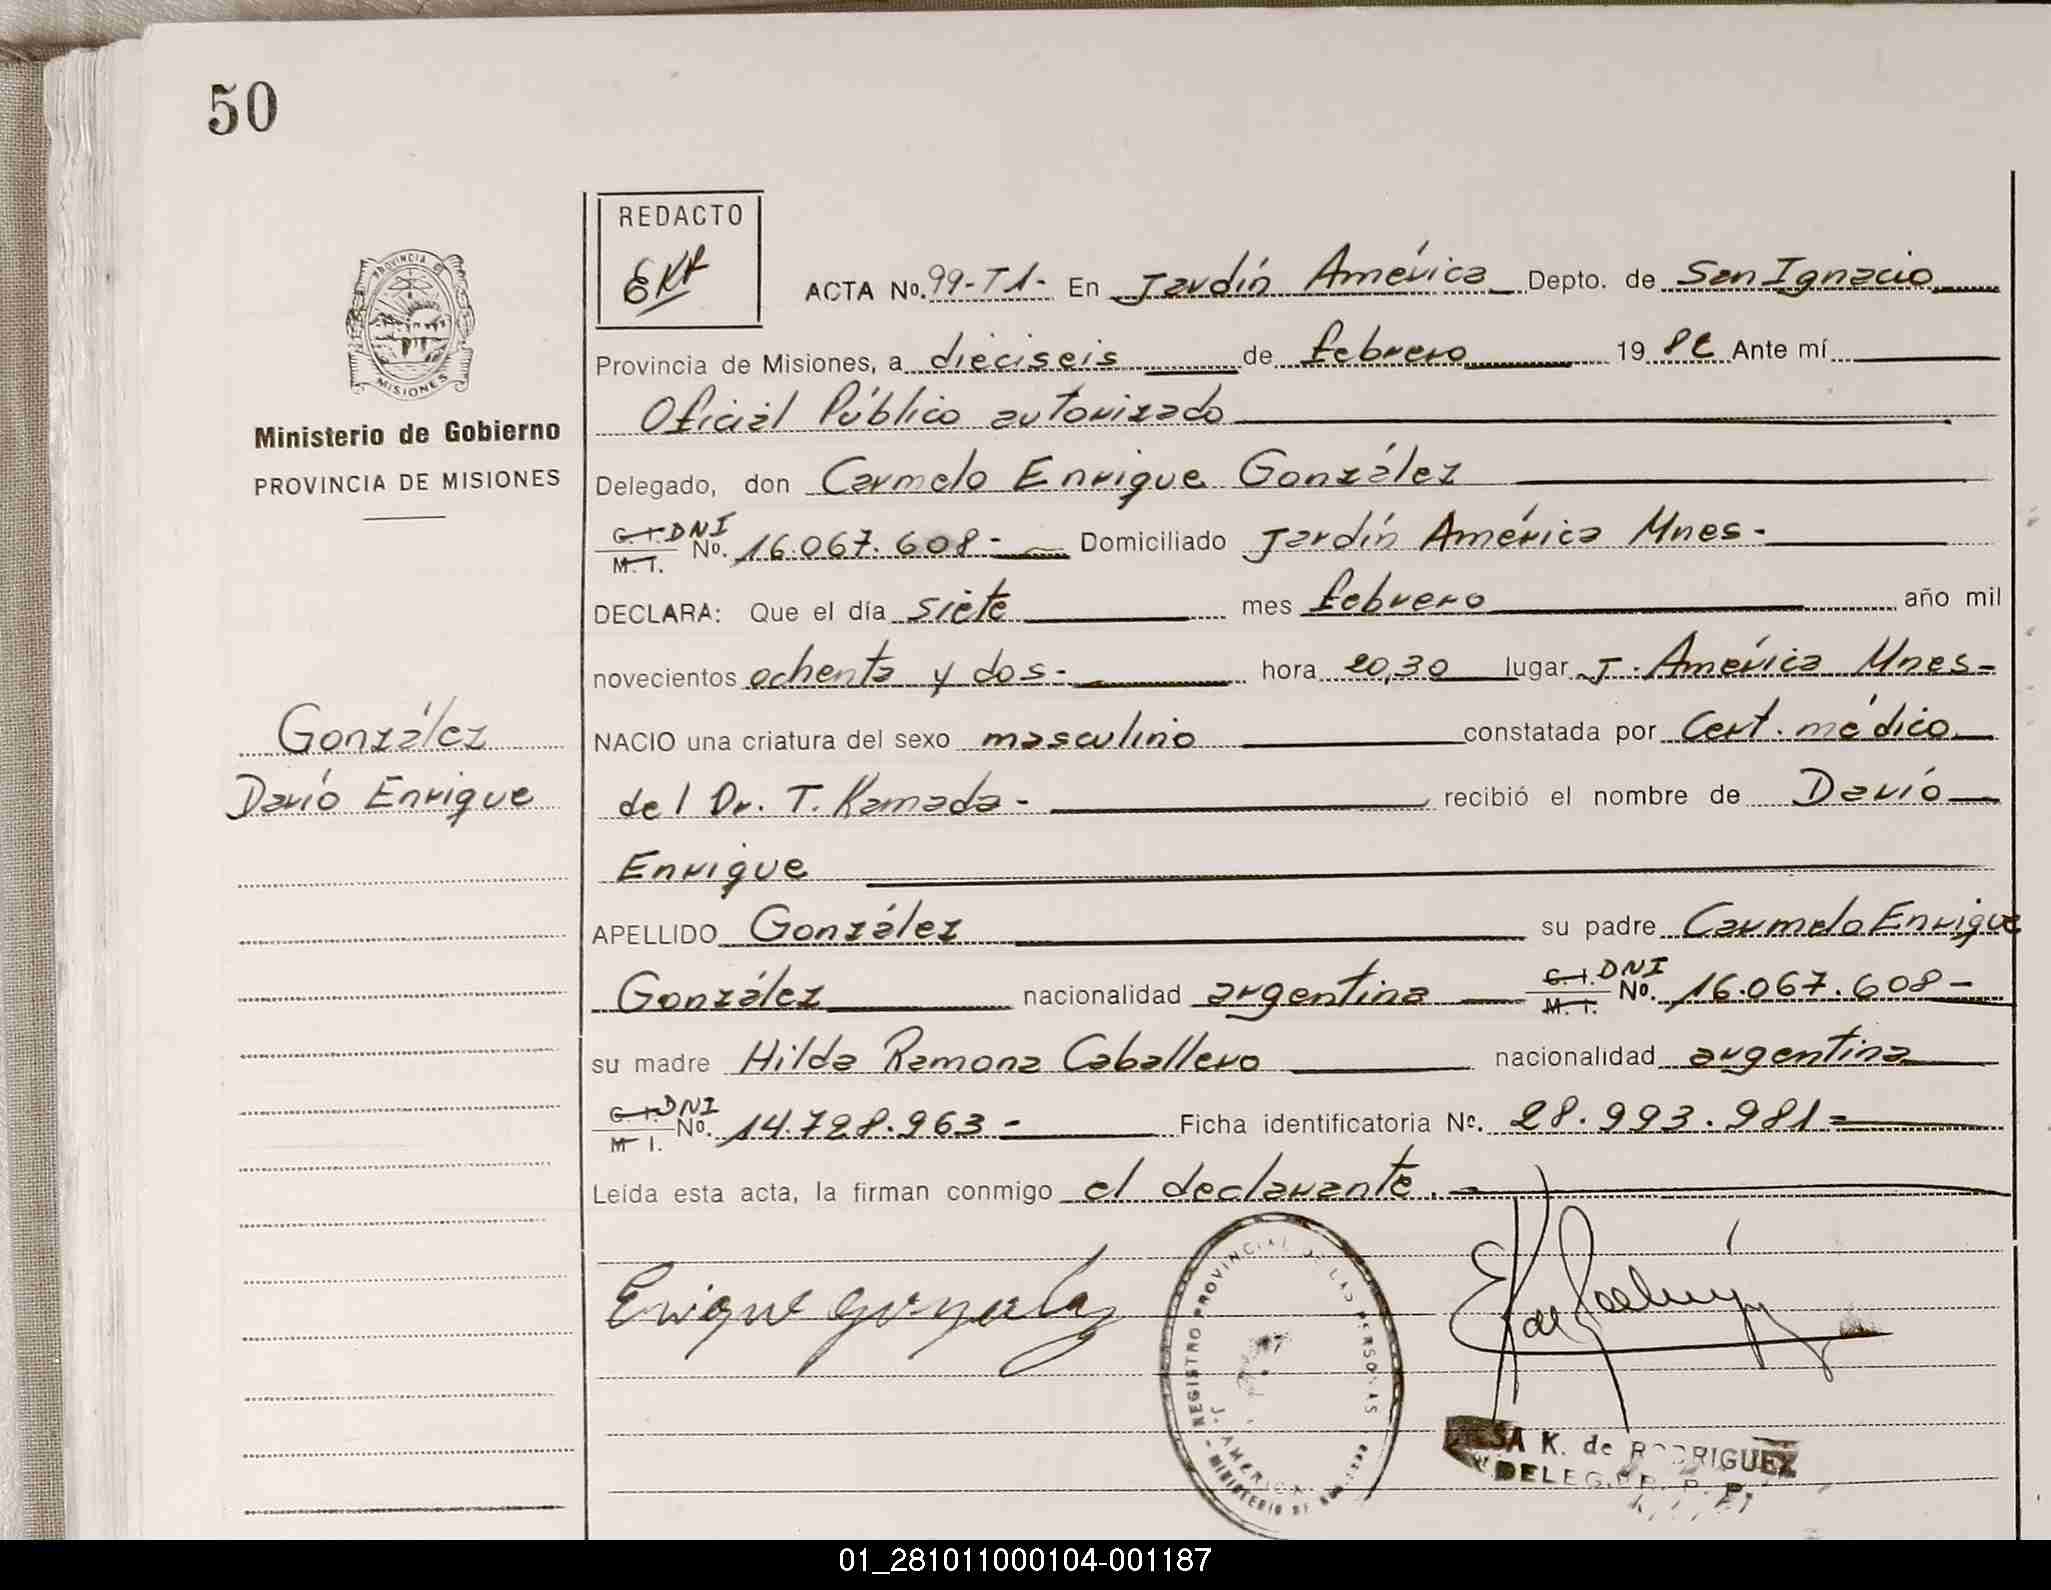 50
REDACTO
ACTA No. 99-T1- En Jardín América Depto. de San Ignacio
PROVINCIA DE
MISIONES
Provincia de Misiones, a dieciseis de febrero 19 82 Ante mí
Oficial Público autorizado
Ministerio de Gobierno
PROVINCIA DE MISIONES
Delegado, don Carmelo Enrique González
C.I. DNI
M.I. No. 16.067.608- Domiciliado Jardín América Mnes-
DECLARA: Que el día siete mes febrero año mil
novecientos ochenta y dos- hora 20,30 lugar J. América Mnes=
González
NACIO una criatura del sexo masculino constatada por Cert. médico
Darío Enrique
del Dr. T. Kamada- recibió el nombre de Darío
Enrique
APELLIDO González su padre Carmelo Enrique
González nacionalidad argentina C.I. DNI M.I. No. 16.067.608-
su madre Hilda Ramona Caballero nacionalidad argentina
C.I. DNI
M.I. No. 14.728.963- Ficha identificatoria No. 28.993.981=
Leída esta acta, la firman conmigo el declarante.-
Enrique Gonzalez
REGISTRO PROVINCIAL DE LAS PERSONAS
J. AMERICA
MINISTERIO DE
K. de RODRIGUEZ
DELEG. R. P. P.
01_281011000104-001187